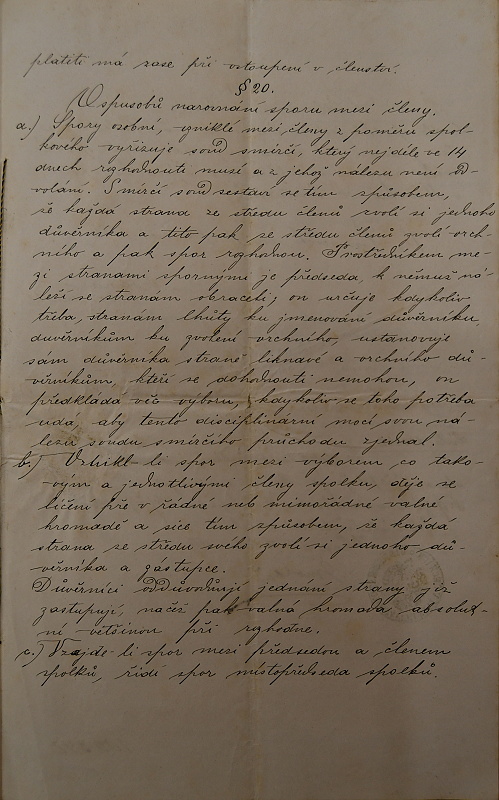 platiti má zase při vstoupení v členství.
§ 20.
O spusobů narovnání sporu mezi členy.
a.) Spory osobní, vzniklé mezi členy z poměru spol-
kového vyřizuje soud smírčí, který nejdéle ve 14
dnech rozhodnouti musí a z jehož nálezu není od-
volání. Smírčí soud sestaví se tím způsobem,
že každá strana ze středu členů zvolí si jednoho
důvěrníka a tito pak se středu členů zvolí vrch-
ního a pak spor rozhodnou. Prostředníkem me-
zi stranami spornými je předseda, k němuž ná-
leží se stranám obraceti; on určuje kdykoliv
třeba, stranám lhůty ku jmenování důvěrníků,
duvěrníkům ku zvolení vrchního, ustanovuje
sám důvěrníka straně liknavé a vrchního dů-
věrníkům, kteří se dohodnouti nemohou, on
předkládá věc výboru, kdykoliv se toho potřeba
udá, aby tento disciplinární mocí svou ná-
lezu soudu smírčího průchodu zjednal.
b.) Vznikl-li spor mezi výborem co tako-
vým a jednotlivými členy spolku, děje se
líčení pře v řádné neb mimořádné valné
hromadě a sice tím způsobem, že každá
strana ze středu svého zvolí si jednoho dů-
věrníka a zastupce.
Důvěrníci odůvodňují jednání strany již
zastupují, načež pak valná hromada absolut-
ní většinou při rozhodne.
c.) Vzejde-li spor mezi předsedou a členem
spolků, řídí spor místopředseda spolků.